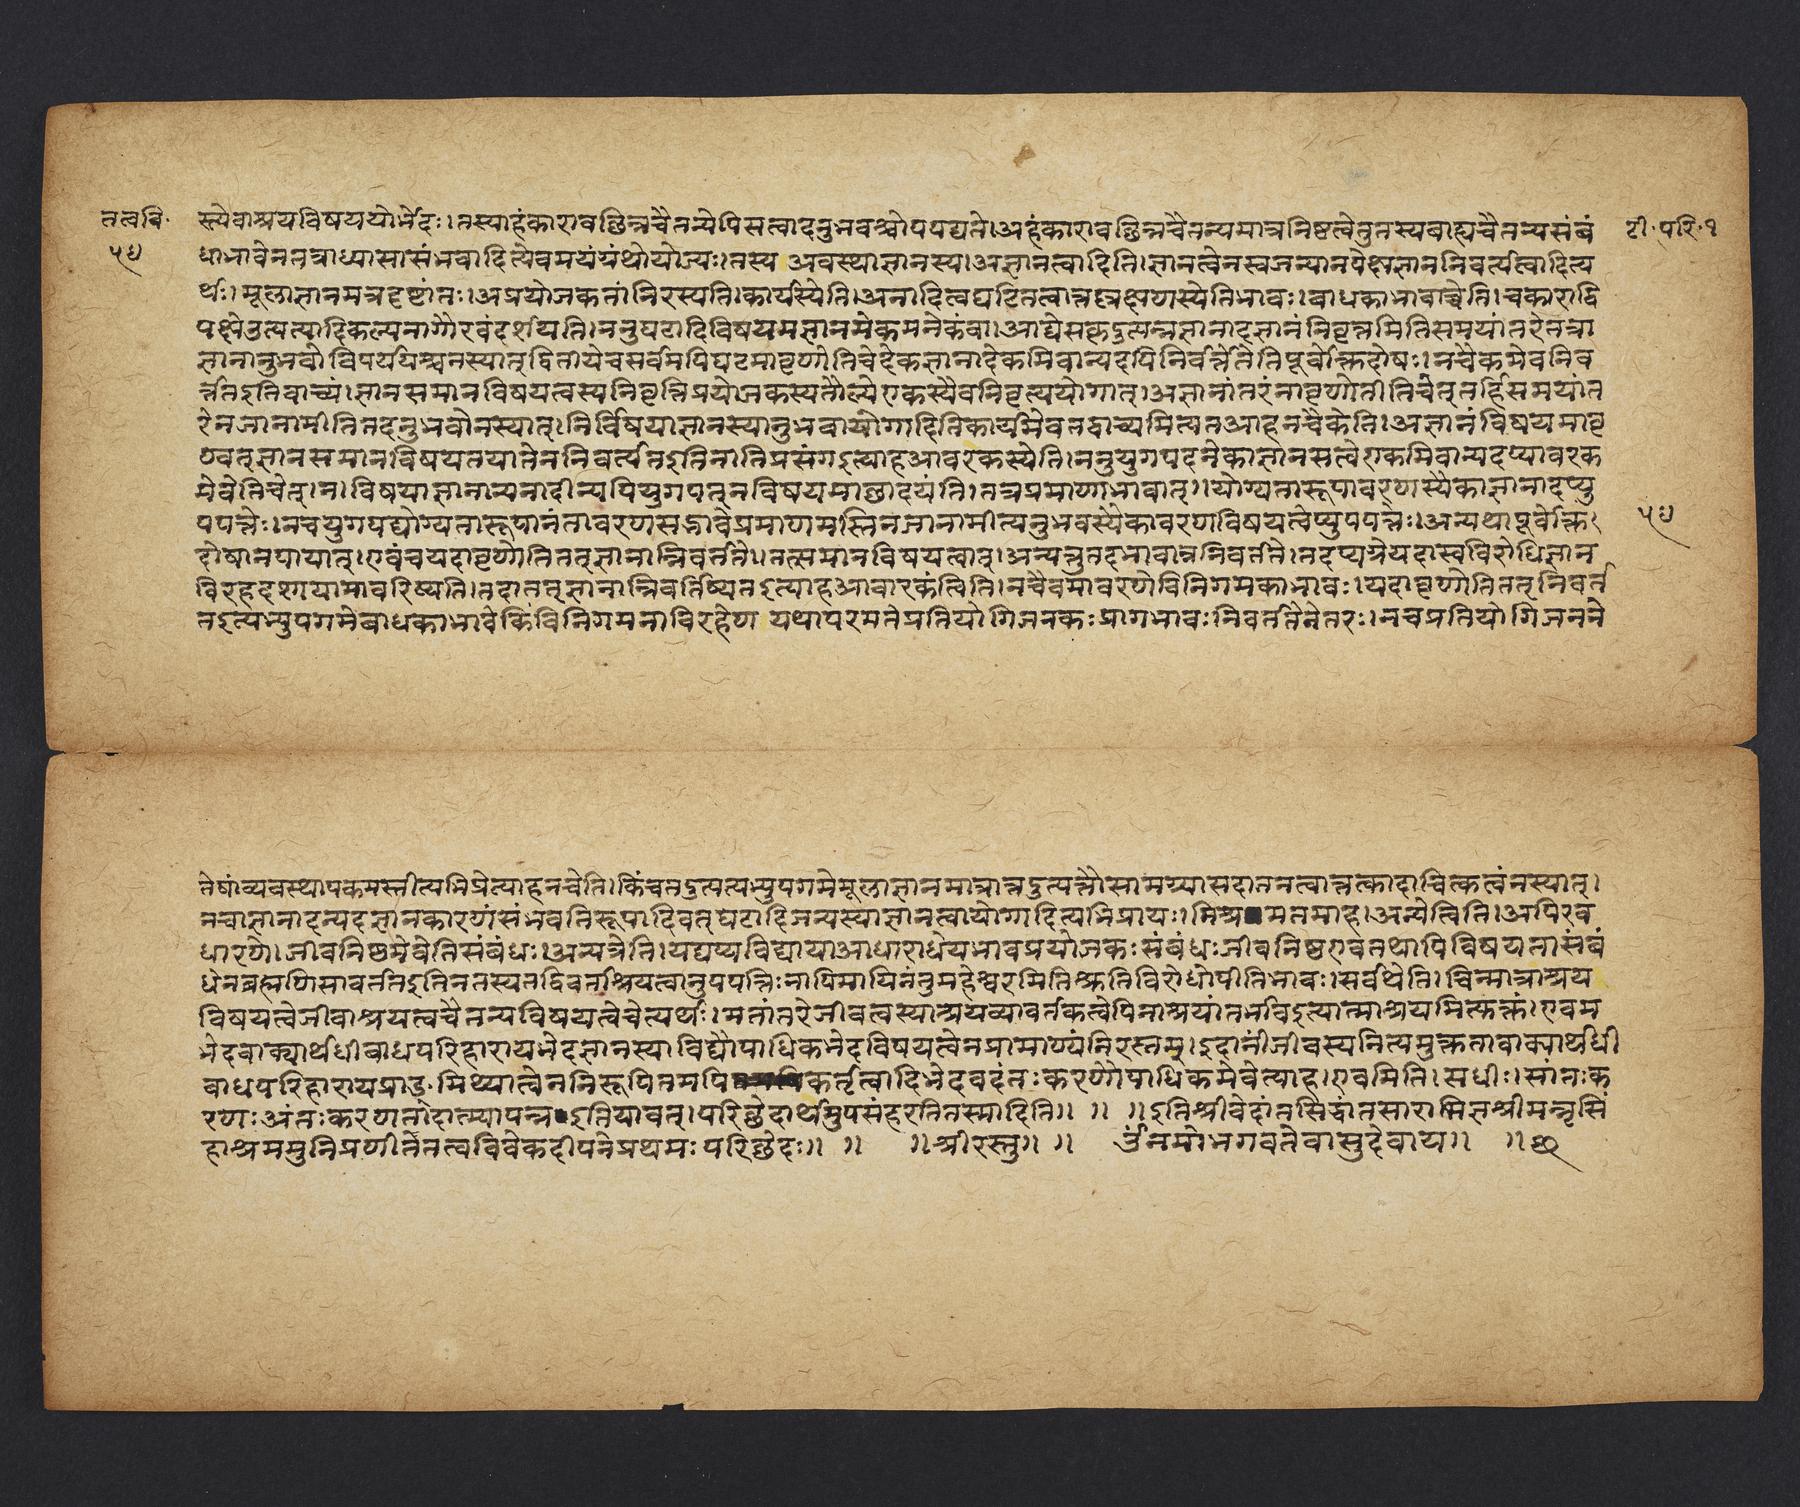 तत्ववि॰
५४
टी॰परि॰१
स्त्येवाश्रयविषययोर्भेदः।तस्याहंकारावछिन्नचैतन्येपिसत्वादनुभवश्चोपपद्यते।अहंकारावछिन्नचैतन्यमात्रनिष्टत्वेतुतस्यबाह्यचैतन्यसंबं
धाभावेनतत्राध्यासासंभवादित्येवमयंग्रंथोयोज्यः।तस्य अवस्थाज्ञानस्य।अज्ञानत्वादिति।ज्ञानत्वेनस्वजन्यानपेक्ष्यज्ञाननिवर्त्यत्वादित्य
र्थः।मूलाज्ञानमत्रदृष्टांतः।अप्रयोजकतांनिरस्यति।कार्यस्येति।अनादित्वघटितत्वात्तल्लक्षणस्येतिभावः।बाधकाभावाच्चेति।चकाराद्वि
पक्षेउत्पत्त्यादिकल्पनागौरवंदर्शयति।ननुघटादिविषयमज्ञानमेकमनेकंवा।आद्येसकृदुत्पन्नज्ञानादज्ञानंनिवृत्तमितिसमयांतरेतत्रा
ज्ञानानुभवोविपर्ययश्चनस्यात्द्वितीयेचसर्वमपिघटमावृणोतिचेदेकज्ञानादेकमिवान्यदपिनिवर्त्तेतेतिपूर्वोक्तदोषः।नचैकमेवनिव
र्त्ततइतिवाच्यं।ज्ञानसमानविषयत्वस्यनिवृत्तिप्रयोजकस्यतौल्येएकस्यैवनिवृत्त्ययोगात्।अज्ञानांतरंनावृणोतीतिचेत्तर्हिसमयांत
रेनजानामीतितदनुभवोनस्यात्।निर्विषयाज्ञानस्यानुभवायोगादितिकार्यमेवतद्वाच्यमित्यतआहनचैकेति।अज्ञानंविषयमावृ
ण्वत्ज्ञानसमानविषयतयातेननिवर्त्यतइतिनातिप्रसंगइत्याहआवरकस्येति।ननुयुगपदनेकाज्ञानसत्वेएकमिवान्यदप्यावरक
मेवेतिचेत्।न।विषयाज्ञानान्यनादीन्यपियुगपत्नविषयमाछादयंति।तत्रप्रमाणाभावात्।योग्यतारूपावरणस्यैकाज्ञानादप्यु
पपत्तेः।नचयुगपद्योग्यतारूपानंतावरणसद्भावेप्रमाणमस्तिनजानामीत्यनुभवस्यैकावरणविषयत्वेप्युपपत्तेः।अन्यथापूर्वोक्त
५४
दोषानपायात्।एवंचयदावृणोतितत्ज्ञानान्निवर्त्तते।तत्समानविषयत्वात्।अन्यत्तुतदभावान्ननिवर्तते।तदप्यग्रेयदास्वविरोधिज्ञान
विरहदशायामावरिष्यति।तदातत्ज्ञानान्निवर्तिष्यतइत्याहआवारकंत्विति।नचैवमावरणेविनिगमकाभावः।यदावृणोतितत्निवर्त
तइत्यभ्युपगमेबाधकाभावेकिंविनिगमनाविरहेण यथापरमतेप्रतियोगिजनकःप्रागभावःनिवर्ततेनेतरः।नचप्रतियोगिजनने
तेषांव्यवस्थापकमस्तीत्यभिप्रेत्याहनचेति।किंचतदुत्पत्त्यभ्युपगमेमूलाज्ञानमात्रात्तदुत्पत्तौसामग्र्यासदातनत्वात्तत्कादाचित्कत्वंनस्यात्।
नचाज्ञानादन्यदज्ञानकारणंसंभवतिरूपादिवत्घटादिजन्यस्याज्ञानत्वायोगादित्यभिप्रायः।मिश्रमतमाह।अन्येत्विति।अपिरव
धारणे।जीवनिष्ठमेवेतिसंबंधः।अन्यत्रेति।यद्यप्यविद्यायाआधाराधेयभावप्रयोजकःसंबंधःजीवनिष्ठएवतथापिविषयतासंबं
धेनब्रह्मणिसावर्ततइतिनतस्यतद्विवर्ताश्रयत्वानुपपत्तिःनापिमायिनंतुमहेश्वरमितिश्रुतिविरोधोपीतिभावः।सर्वथेति।चिन्मात्राश्रय
विषयत्वेजीवाश्रयत्वचैतन्यविषयत्वेचेत्यर्थः।मतांतरेजीवत्वस्याश्रयव्यावर्तकत्वेपिनाश्रयांतर्भावइत्यात्माश्रयमित्युक्तं।एवम
भेदवाक्यार्थधीबाधपरिहारायभेदज्ञानस्याविद्यौपाधिकभेदविषयत्वेनप्रामाण्यंनिरस्तम्।इदानींजीवस्यनित्यमुक्ततावाक्यार्थधी
बाधपरिहारायप्राङ्॰मिथ्यात्वेननिरूपितमपिकर्तृत्वादिभेदवदंतःकरणौपाधिकमेवेत्याह।एवमिति।सधीः।सांतःक
रणःअंतःकरणतादात्म्यापन्नइतियावत्।परिछेदार्थमुपसंहरतितस्मादिति॥ ॥ ॥इतिश्रीवेदांतसिद्धांतसाराभिज्ञश्रीमन्नृसिं
हाश्रममुनिप्रणीतेतत्वविवेकदीपनेप्रथमःपरिछेदः॥ ॥ ॥श्रीरस्तु॥ ॥ ॐनमोभगवतेवासुदेवाय॥ ॥छ